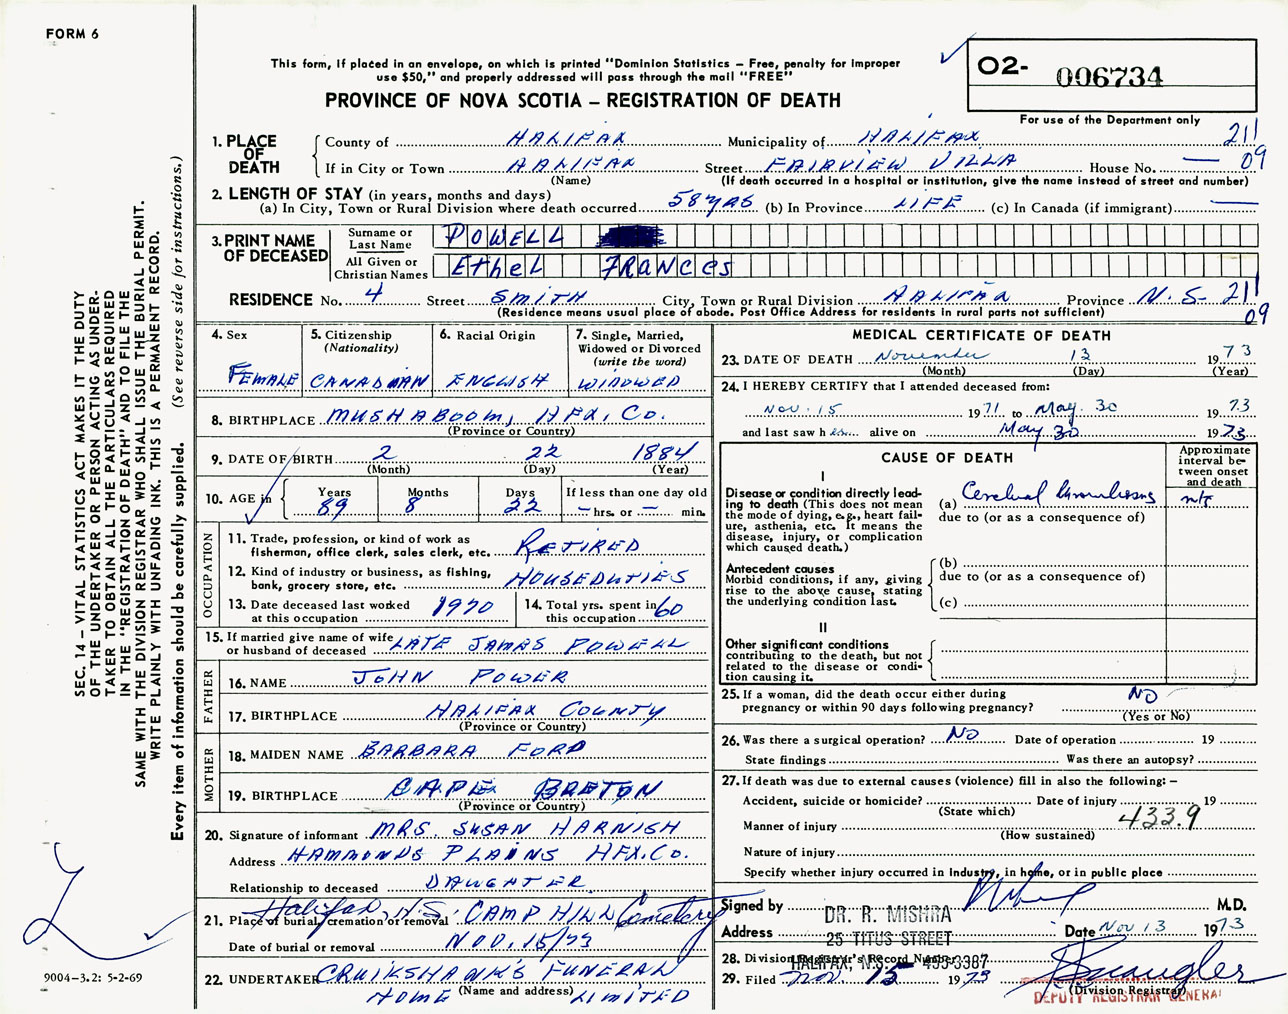 FORM 6
This form, if placed in an envelope, on which is printed "Dominion Statistics – Free, penalty for improper
use $50," and properly addressed will pass through the mail "FREE"
PROVINCE OF NOVA SCOTIA – REGISTRATION OF DEATH
O2- 006734
For use of the Department only
1. PLACE OF DEATH County of HALIFAX Municipality of HALIFAX 211
If in City or Town HALIFAX Street FAIRVIEW VILLA House No. — 09
(Name) (If death occurred in a hospital or institution, give the name instead of street and number)
2. LENGTH OF STAY (in years, months and days)
(a) In City, Town or Rural Division where death occurred 58 yrs (b) In Province LIFE (c) In Canada (if immigrant) —
3. PRINT NAME OF DECEASED Surname or Last Name POWELL
All Given or Christian Names EthEL FRANCES
RESIDENCE No. 4 Street SMITH City, Town or Rural Division HALIFAX Province N.S. 211
(Residence means usual place of abode. Post Office Address for residents in rural parts not sufficient) 09
4. Sex FEMALE
5. Citizenship (Nationality) CANADIAN
6. Racial Origin ENGLISH
7. Single, Married, Widowed or Divorced (write the word) WIDOWED
8. BIRTHPLACE MUSHABOOM, HFX. Co.
(Province or County)
9. DATE OF BIRTH 2 22 1884
(Month) (Day) (Year)
10. AGE in Years 89 Months 8 Days 22 If less than one day old – hrs. or – min.
OCCUPATION
11. Trade, profession, or kind of work as fisherman, office clerk, sales clerk, etc. RETIRED
12. Kind of industry or business, as fishing, bank, grocery store, etc. HOUSEDUTIES
13. Date deceased last worked at this occupation 1970
14. Total yrs. spent in this occupation 60
15. If married give name of wife or husband of deceased LATE JAMES POWELL
FATHER
16. NAME JOHN POWER
17. BIRTHPLACE HALIFAX COUNTY
(Province or Country)
MOTHER
18. MAIDEN NAME BARBARA FORD
19. BIRTHPLACE CAPE BRETON
(Province or Country)
20. Signature of informant MRS. SUSAN HARNISH
Address HAMMONDS PLAINS HFX. Co.
Relationship to deceased DAUGHTER
21. Place of burial, cremation or removal Halifax, N.S. CAMP HILL Cemetery
Date of burial or removal NOV. 15/73
22. UNDERTAKER CRUIKSHANK'S FUNERAL
HOME (Name and address) LIMITED
MEDICAL CERTIFICATE OF DEATH
23. DATE OF DEATH November 13 1973
(Month) (Day) (Year)
24. I HEREBY CERTIFY that I attended deceased from:
Nov. 15 1971 to May 30 1973
and last saw h er alive on May 30 1973
CAUSE OF DEATH
Approximate interval between onset and death
I
Disease or condition directly leading to death (This does not mean the mode of dying, e.g., heart failure, asthenia, etc. It means the disease, injury, or complication which caused death.)
(a) Cerebral thrombosis
due to (or as a consequence of)
Antecedent causes
Morbid conditions, if any, giving rise to the above cause, stating the underlying condition last.
(b)
due to (or as a consequence of)
(c)
II
Other significant conditions
contributing to the death, but not related to the disease or condition causing it.
25. If a woman, did the death occur either during pregnancy or within 90 days following pregnancy? NO
(Yes or No)
26. Was there a surgical operation? NO Date of operation 19
State findings Was there an autopsy?
27. If death was due to external causes (violence) fill in also the following: –
Accident, suicide or homicide? Date of injury 19
(State which)
Manner of injury 433.9
(How sustained)
Nature of injury
Specify whether injury occurred in Industry, in home, or in public place
Signed by M.D.
DR. R. MISHRA
Address 25 TITUS STREET Date Nov 13 1973
HALIFAX, N.S. 455-3387
28. Division Registrar's Record Number
29. Filed Nov. 15 1973
(Division Registrar)
DEPUTY REGISTRAR GENERAL
SEC. 14 – VITAL STATISTICS ACT MAKES IT THE DUTY
OF THE UNDERTAKER OR PERSON ACTING AS UNDER-
TAKER TO OBTAIN ALL THE PARTICULARS REQUIRED
IN THE "REGISTRATION OF DEATH" AND TO FILE THE
SAME WITH THE DIVISION REGISTRAR WHO SHALL ISSUE THE BURIAL PERMIT.
WRITE PLAINLY WITH UNFADING INK. THIS IS A PERMANENT RECORD.
Every item of information should be carefully supplied. (See reverse side for instructions.)
9004–3.2: 5-2-69